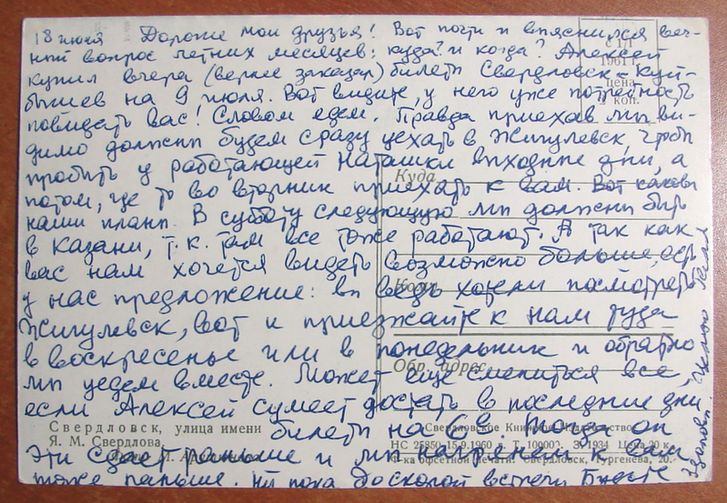 18 июля Дорогие мои друзья! Вот почти и выяснился веч-
ный вопрос летних месяцев: куда? и когда? Алексей
купил вчера (вернее заказал) билеты Свердловск – Куй-
бышев на 9 июля. Вот видите, у него уже потребность
повидать вас! Словом едем. Правда приехав мы ви-
димо должны будем сразу уехать в Жигулевск, чтобы
пробыть у работающей Наташки выходные дни, а
потом, где то во вторник приехать к вам. Вот каковы
наши планы. В субботу следующую мы должны быть
в Казани, т.к. там все тоже работают. А так как
вас нам хочется видеть возможно больше, есть
у нас предложение: вы ведь хотели посмотреть
Жигулевск, вот и приезжайте к нам туда
в воскресенье или в понедельник и обратно
мы уедем вместе. Может еще смениться все,
если Алексей сумеет достать в последние дни
билеты на 6-е. Тогда он
эти сдает раньше и мы нагрянем к вам
тоже раньше. Ну пока до скорой встречи Будьте
здоровы. Целую
с 1/I
1961 г.
цена
коп.
Куда
Кому
Обр. адрес
Свердловск, улица имени
Я. М. Свердлова.
Фото
Свердловское Книжное Издательство
НС 25850 15.9.1960 г. Т. 100000. З. 1934 Цена 20 к.
Ф-ка офсетной печати. Свердловск, Тургенева, 20.